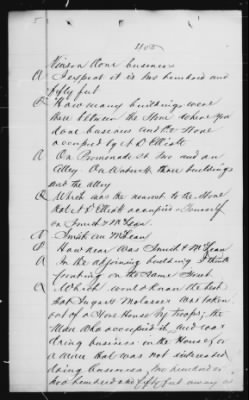 5
1105
Vinson done business
A I expect it is two hundred and
fifty feet
Q How many buildings were
there between the Store where you
done business and the Store
occupied by A D Elliott
A On Promenade St two and an
Alley. On Water St three buildings
and the alley
Q Which was the nearest to the Store
Robt D Elliott occupied Yourself
or Smith & McLean
A Smith and McLean
Q How near was Smith & McLean
A In the adjoining building I think
fronting on the same Street
Q Which would know the best
that Sugar & Molasses was taken
out of a Store House by troops; the
Man who occupied it and was
doing business in the House, or
a man that was not interested
doing business two hundred or
two hundred and fifty feet away as